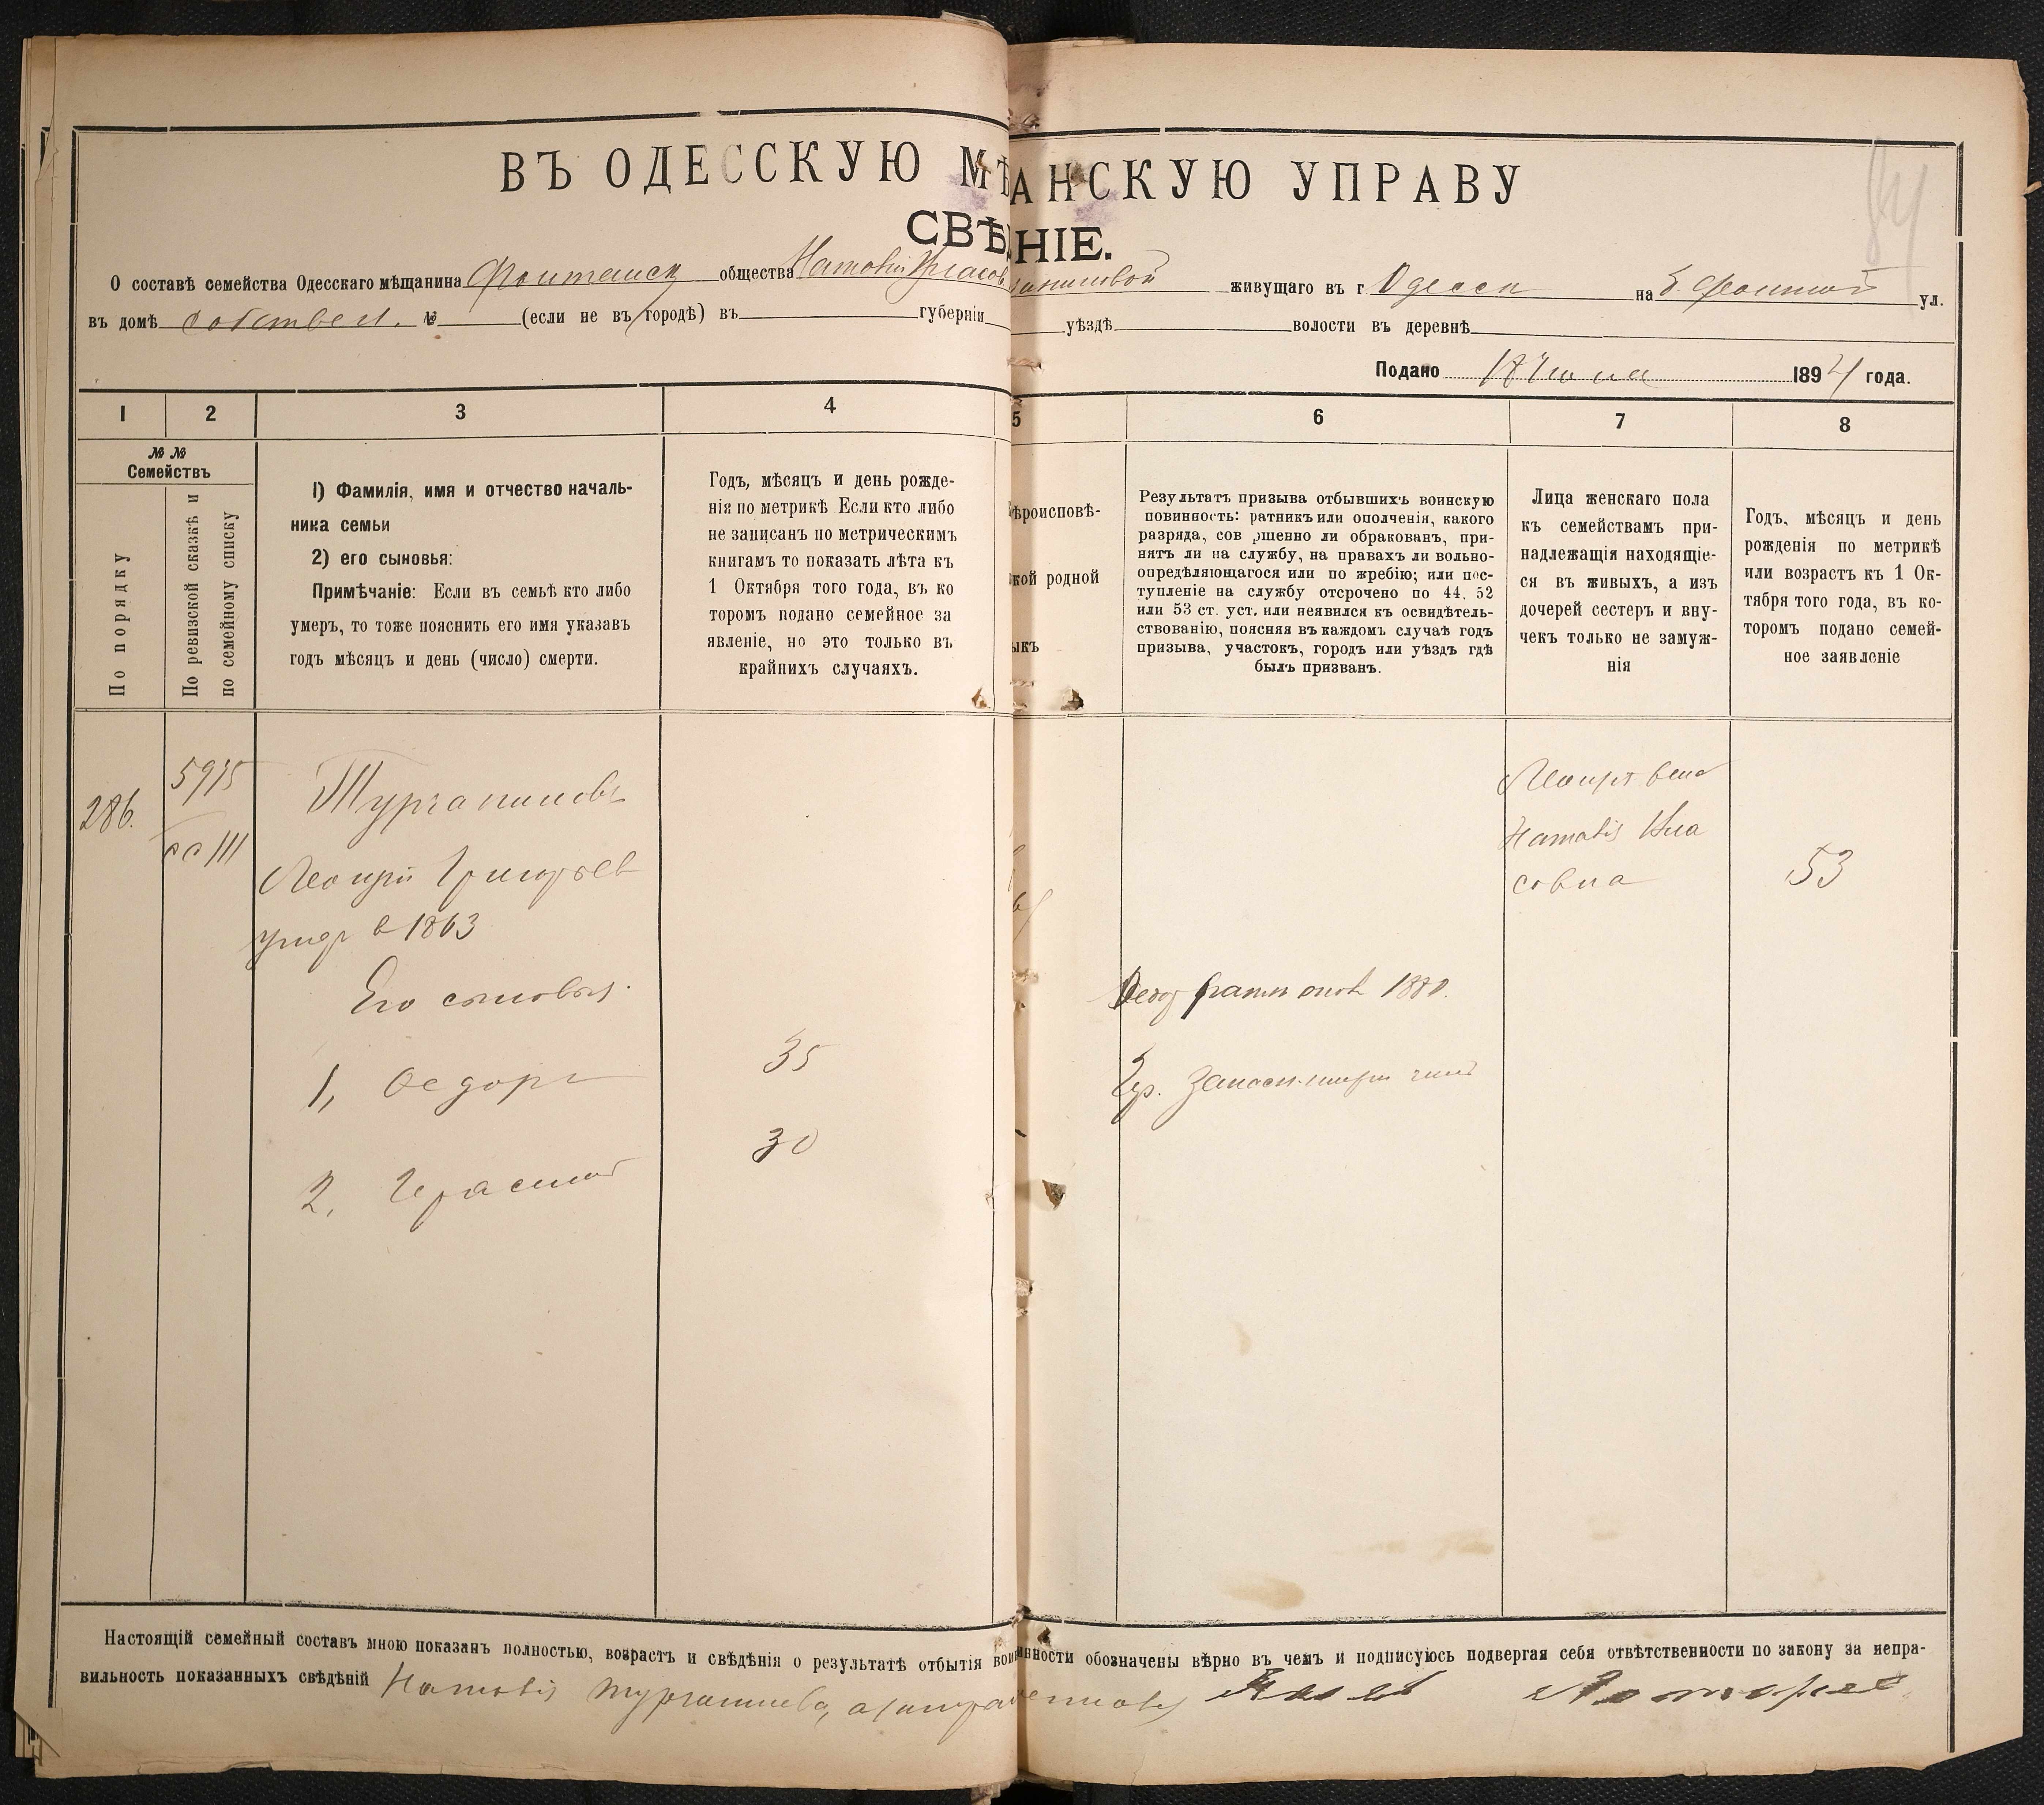 ВЪ ОДЕССКУЮ МѢ АНСКУЮ УПРАВУ
СВѢ НІЕ.
О составѣ семейства Одесскаго мѣщанина Фонтанск общества Наталіи Власов живущаго въ г Одессѣ на Б. Фонтан ул.
въ домѣ собствен. № (если не въ городѣ) въ губерніи уѣздѣ волости въ деревнѣ
Подано 18 Іюня 1894 года.
1 2 3 4 5 6 7 8
№ № Семействъ
По порядку
По ревизской сказкѣ и по семейному списку
1) Фамилія, имя и отчество началь-
ника семьи
2) его сыновья:
Примѣчаніе: Если въ семьѣ кто либо
умеръ, то тоже пояснить его имя указавъ
годъ мѣсяцъ и день (число) смерти.
Годъ, мѣсяцъ и день рожде-
нія по метрикѣ Если кто либо
не записанъ по метрическимъ
книгамъ то показать лѣта къ
1 Октября того года, въ ко
торомъ подано семейное за
явленіе, но это только въ
крайнихъ случаяхъ.
ѣроисповѣ-
кой родной
ыкъ
Результатъ призыва отбывшихъ воинскую
повинность: ратникъ или ополченія, какого
разряда, сов ршенно ли обракованъ, при-
нятъ ли на службу, на правахъ ли вольно-
опредѣляющагося или по жребію; или пос-
тупленіе на службу отсрочено по 44, 52
или 53 ст. уст. или неявился къ освидѣтель-
ствованію, поясняя въ каждомъ случаѣ годъ
призыва, участокъ, городъ или уѣздъ гдѣ
былъ призванъ.
Лица женскаго пола
къ семействамъ при-
надлежащія находящіе-
ся въ живыхъ, а изъ
дочерей сестеръ и вну-
чекъ только не замуж-
нія
Годъ, мѣсяцъ и день
рожденія по метрикѣ
или возрастъ къ 1 Ок-
тября того года, въ ко-
торомъ подано семей-
ное заявленіе
286.
5975
Григорьев
умер в 1863
Его сыновья.
1, Федоръ 35
2, Герасим 30
Федор ратн опол 1880.
Гер. Запасн. чин
Наталія Вла
совна
53
Настоящій семейный составъ мною показанъ полностью, возрастъ и свѣдѣнія о результатѣ отбытія вои нности обозначены вѣрно въ чемъ и подписуюсь подвергая себя отвѣтственности по закону за непра-
вильность показанныхъ свѣдѣній Наталія